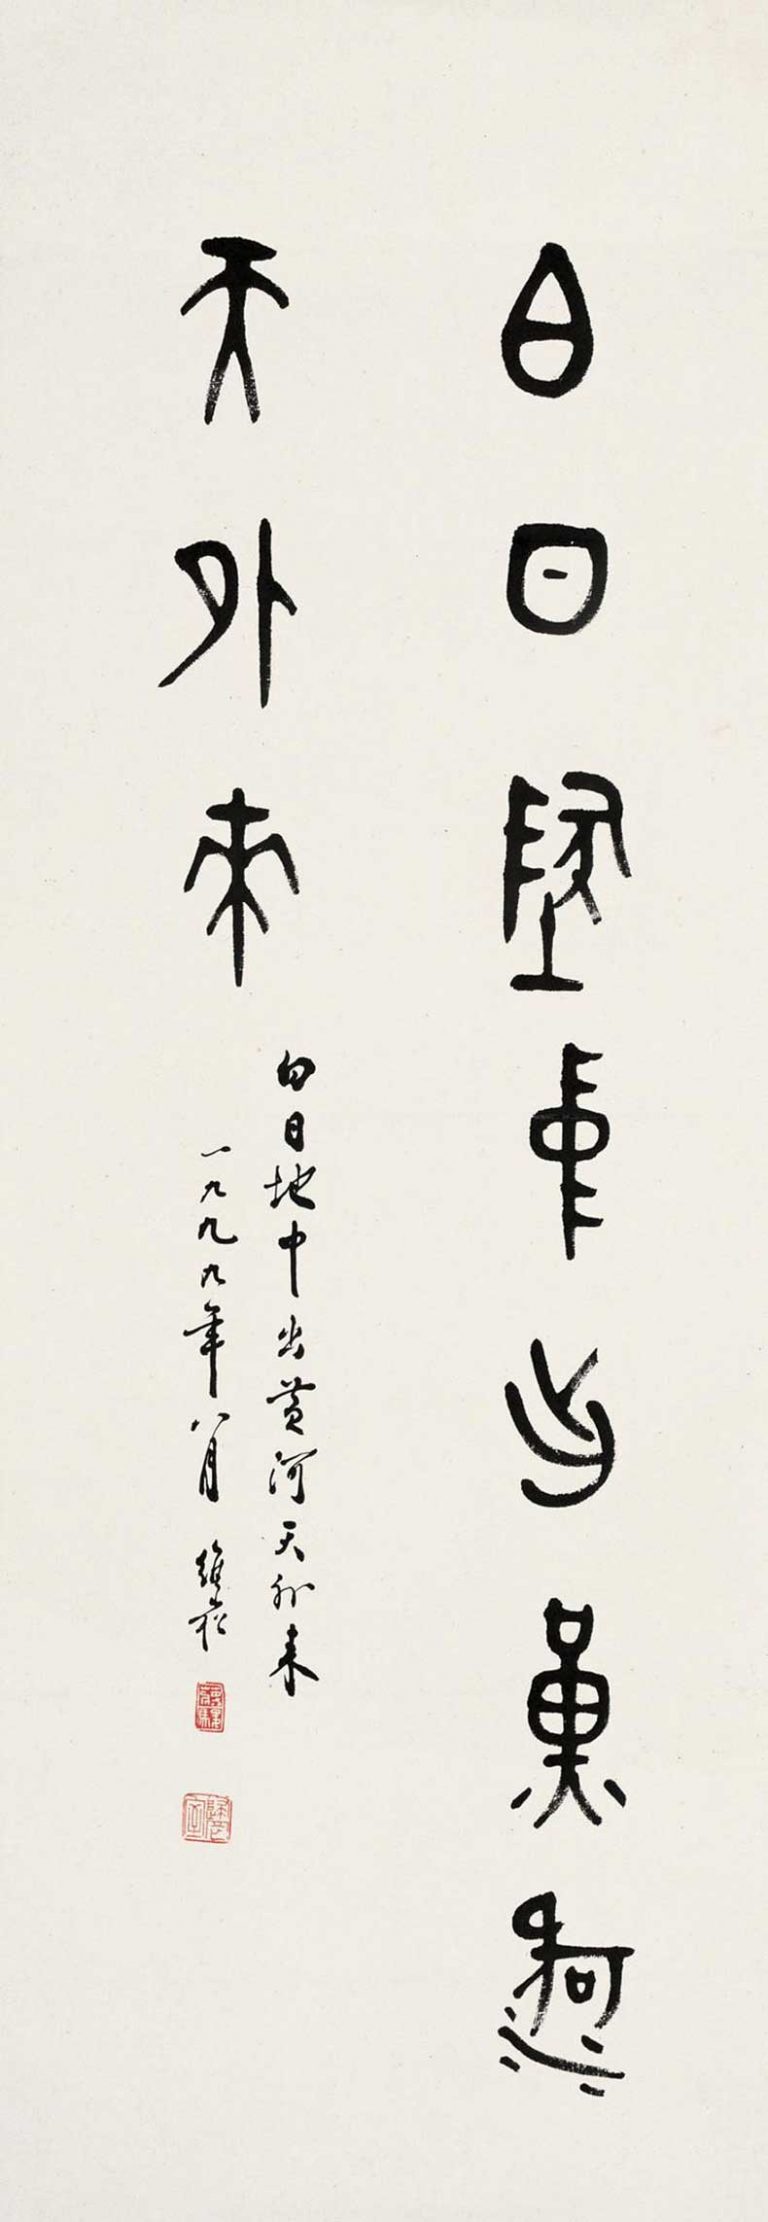 白日地中出黄河
天外来
白日地中出黄河天外来
一九九九年八月 維崧